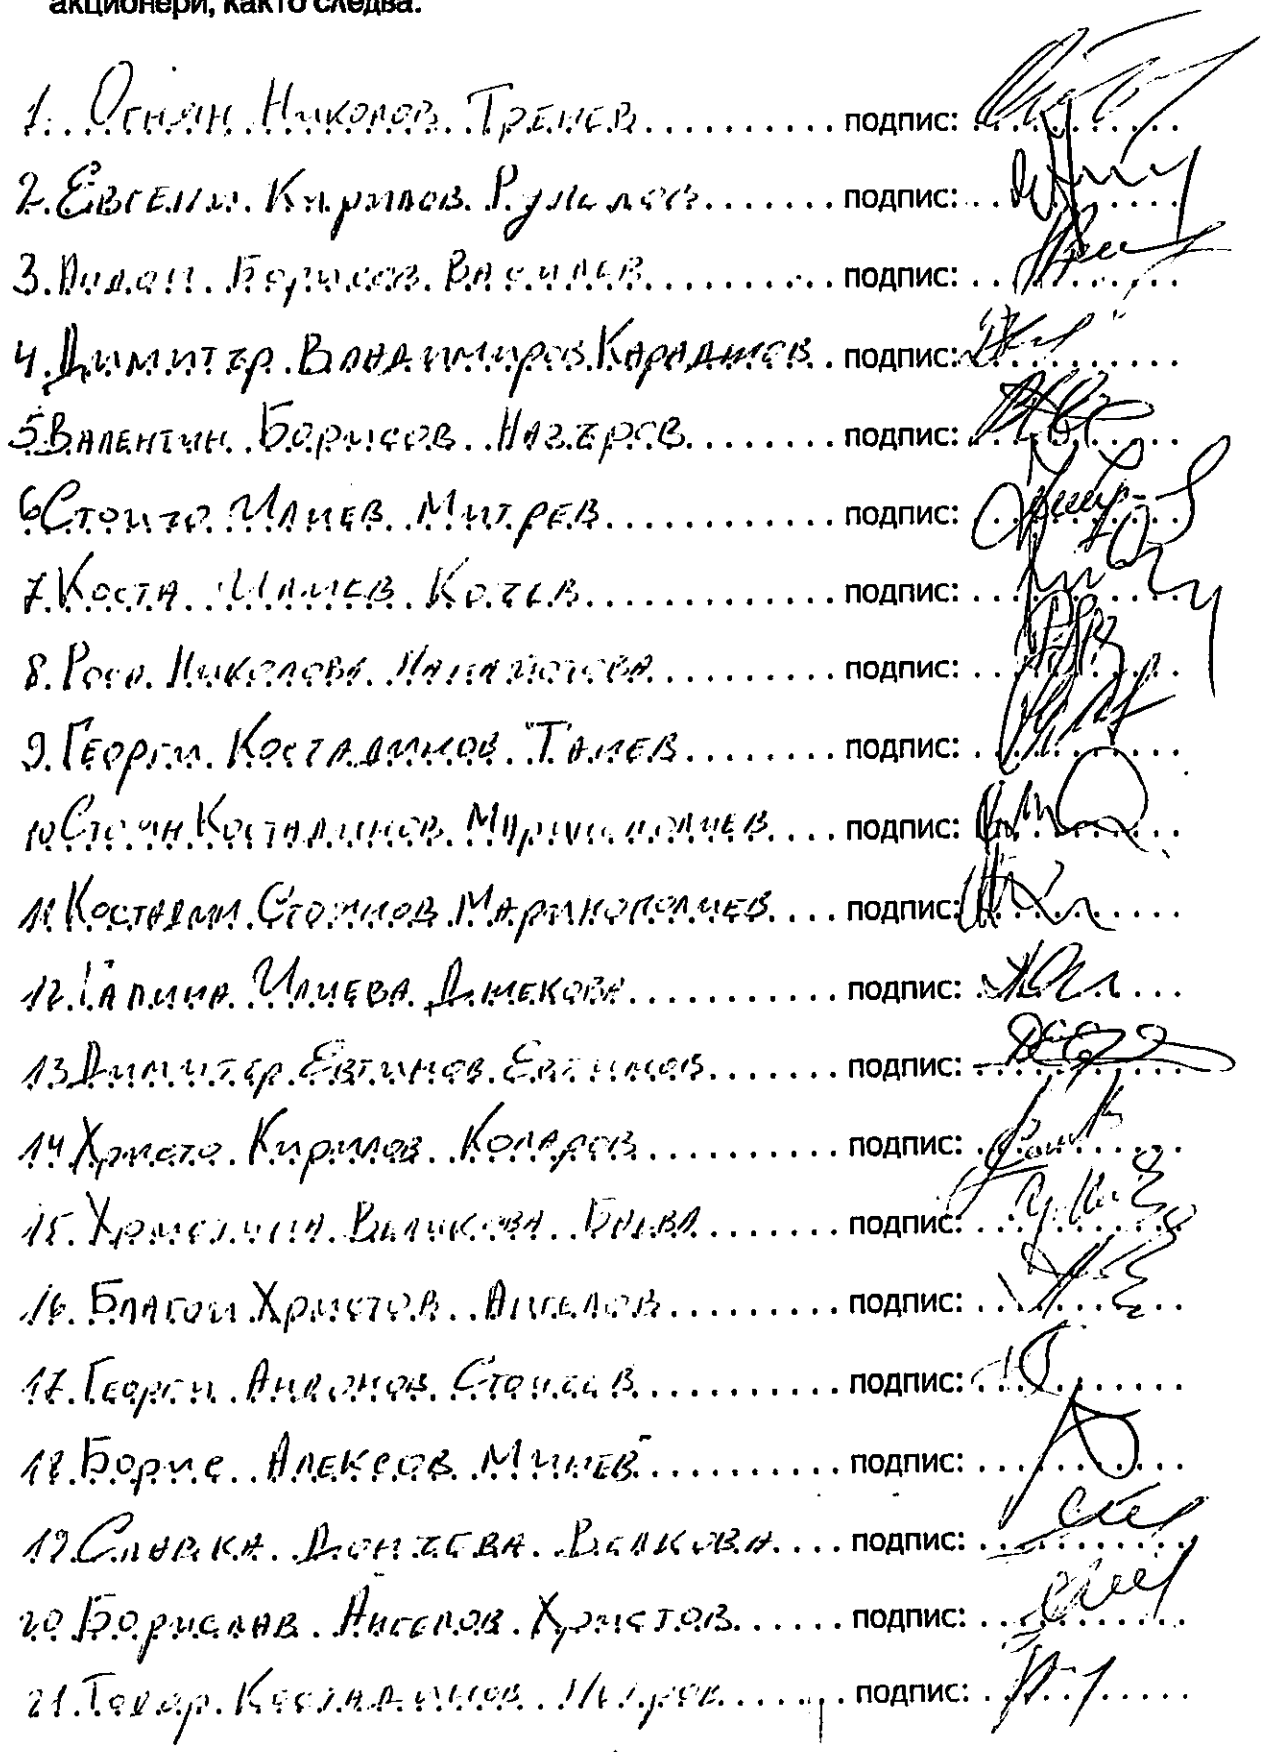 акционери, както следва:
1. Огнян Николов Тренев подпис:
2. Евгени Кирилов подпис:
3. Борисов Василев подпис:
4. Димитър Владимиров Караджов подпис:
5. Валентин Борисов Назъров подпис:
6. Стоичо Илиев Митрев подпис:
7. Коста Илиев Котев подпис:
8. Роса Николова Панайотова подпис:
9. Георги Костадинов Танев подпис:
10. Стоян Костадинов Маринополчев подпис:
11. Костадин Стоянов Маринополчев подпис:
12. Галина Илиева Джекова подпис:
13. Димитър Евтимов Евтимов подпис:
14. Христо Кирилов Коларов подпис:
15. Христина Величкова подпис:
16. Благой Христов Ангелов подпис:
17. Георги Андонов Стоицев подпис:
18. Борис Алексов Минев подпис:
19. Славка Дончева Велкова подпис:
20. Борислав Ангелов Христов подпис:
21. Тодор Костадинов подпис: